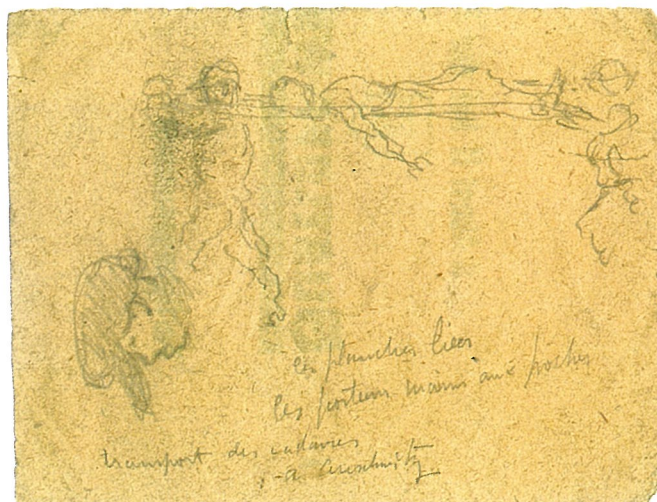 les planches liées
les porteurs mains aux poches
transport des cadavres
à Auschwitz